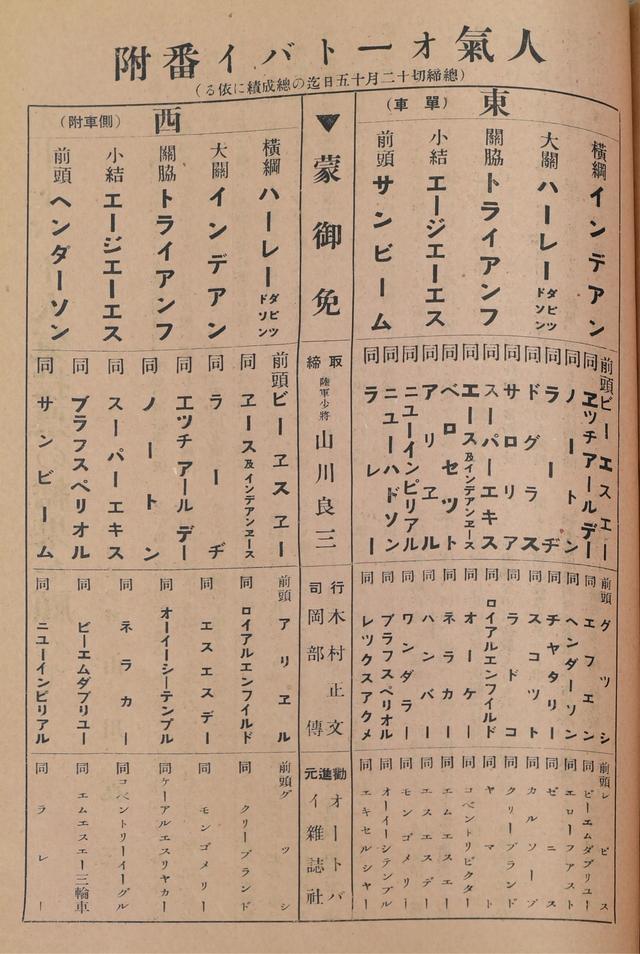 人氣オートバイ番附
(總締切十二月十五日迄の總成績に依る)
東(單車)
横綱 インデアン
大關 ハーレーダビツドソン
關脇 トライアンフ
小結 エージエーエス
前頭 サンビーム
前頭 ビーエスエー
同 ヱツチアールデー
同 ノートン
同 ラーヂ
同 ドグラス
同 サロリア
同 スーパーエキス
同 エース及インデアンヱース
同 ベロセツト
同 アリヱル
同 ニユーインピリアル
同 ニユーハドソン
同 ラレー
前頭 グツシ
同 エフエン
同 ヘンダーソン
同 チヤタリー
同 スコツト
同 ラドコ
同 ロイアルエンフイルド
同 オーケー
同 ネラカー
同 ハンバー
同 ワンダラー
同 ブラフスペリオル
同 レツクスアクメ
前頭 レビス
同 ビーエムダブリユー
同 エローフアスト
同 ゼニス
同 カルソープ
同 クリーブランド
同 ヤマト
同 コベントリビクター
同 エムエスエー
同 エスエスデー
同 モンゴメリー
同 オーイーシテンプル
同 エキセルシヤー
▼蒙御免
取締 陸軍少將 山川良三
行司 木村正文
岡部傳
勸進元 オートバイ雜誌社
西(側車附)
横綱 ハーレーダビツドソン
大關 インデアン
關脇 トライアンフ
小結 エージエーエス
前頭 ヘンダーソン
前頭 ビーヱスヱー
同 ヱース及インデアンヱース
同 ラーヂ
同 エツチアールデー
同 ノートン
同 スーパーエキス
同 ブラフスペリオル
同 サンビーム
前頭 アリヱル
同 ロイアルエンフイルド
同 エスエスデー
同 オーイーシーテンプル
同 ネラカー
同 ビーエムダブリユー
同 ニユーインピリアル
前頭 グツシ
同 クリーブランド
同 モンゴメリー
同 ケーアルエスリヤカー
同 コベントリーイーグル
同 エムエスエー三輪車
同 ラレー